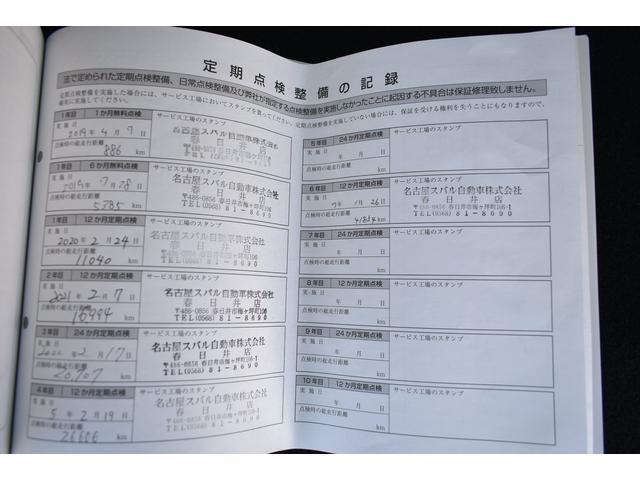 定期点検整備の記録
法で定められた定期点検整備、日常点検整備及び弊社が指定する点検整備を実施しなかったことに起因する不具合は保証修理致しません。
定期点検整備を実施した場合には、サービス工場においてスタンプを貰ってください。定期点検整備を実施していない場合には、保証を受ける権利を失うことにもなりますので、
確実に実施してください。
1年目 1か月無料点検 サービス工場のスタンプ
実施日
2019年 4月 7日
点検時の総走行距離
886 km
名古屋スバル自動車株式会社
春日井店
1年目 6か月無料点検 サービス工場のスタンプ
実施日
2019年 7月 28日
点検時の総走行距離
5785 km
名古屋スバル自動車株式会社
春日井店
〒486-0856 春日井市梅ヶ坪町106
TEL(0568) 81-8690
1年目 12か月定期点検 サービス工場のスタンプ
実施日
2020年 2月 24日
点検時の総走行距離
11040 km
名古屋スバル自動車株式会社
春日井店
〒486-0856 春日井市梅ヶ坪町106-1
TEL(0568) 81-8690
2年目 12か月定期点検 サービス工場のスタンプ
実施日
2021年 2月 7日
点検時の総走行距離
16994 km
名古屋スバル自動車株式会社
春日井店
〒486-0856 春日井市梅ヶ坪町106-1
TEL(0568) 81-8690
3年目 24か月定期点検 サービス工場のスタンプ
実施日
年 2月 17日
点検時の総走行距離
km
名古屋スバル自動車株式会社
春日井店
〒486-0856 春日井市梅ヶ坪町106-1
TEL(0568) 81-8690
4年目 12か月定期点検 サービス工場のスタンプ
実施日
5年 2月 19日
点検時の総走行距離
26606 km
名古屋スバル自動車株式会社
春日井店
〒486-0856 春日井市梅ヶ坪町106-1
TEL(0568) 81-8690
5年目 24か月定期点検 サービス工場のスタンプ
実施日
年 月 日
点検時の総走行距離
km
6年目 12か月定期点検 サービス工場のスタンプ
実施日
7年 月 26日
点検時の総走行距離
41824 km
名古屋スバル自動車株式会社
春日井店
〒486-0856 春日井市梅ヶ坪町106-1
TEL(0568) 81-8690
7年目 24か月定期点検 サービス工場のスタンプ
実施日
年 月 日
点検時の総走行距離
km
8年目 12か月定期点検 サービス工場のスタンプ
実施日
年 月 日
点検時の総走行距離
km
9年目 24か月定期点検 サービス工場のスタンプ
実施日
年 月 日
点検時の総走行距離
km
10年目 12か月定期点検 サービス工場のスタンプ
実施日
年 月 日
点検時の総走行距離
km